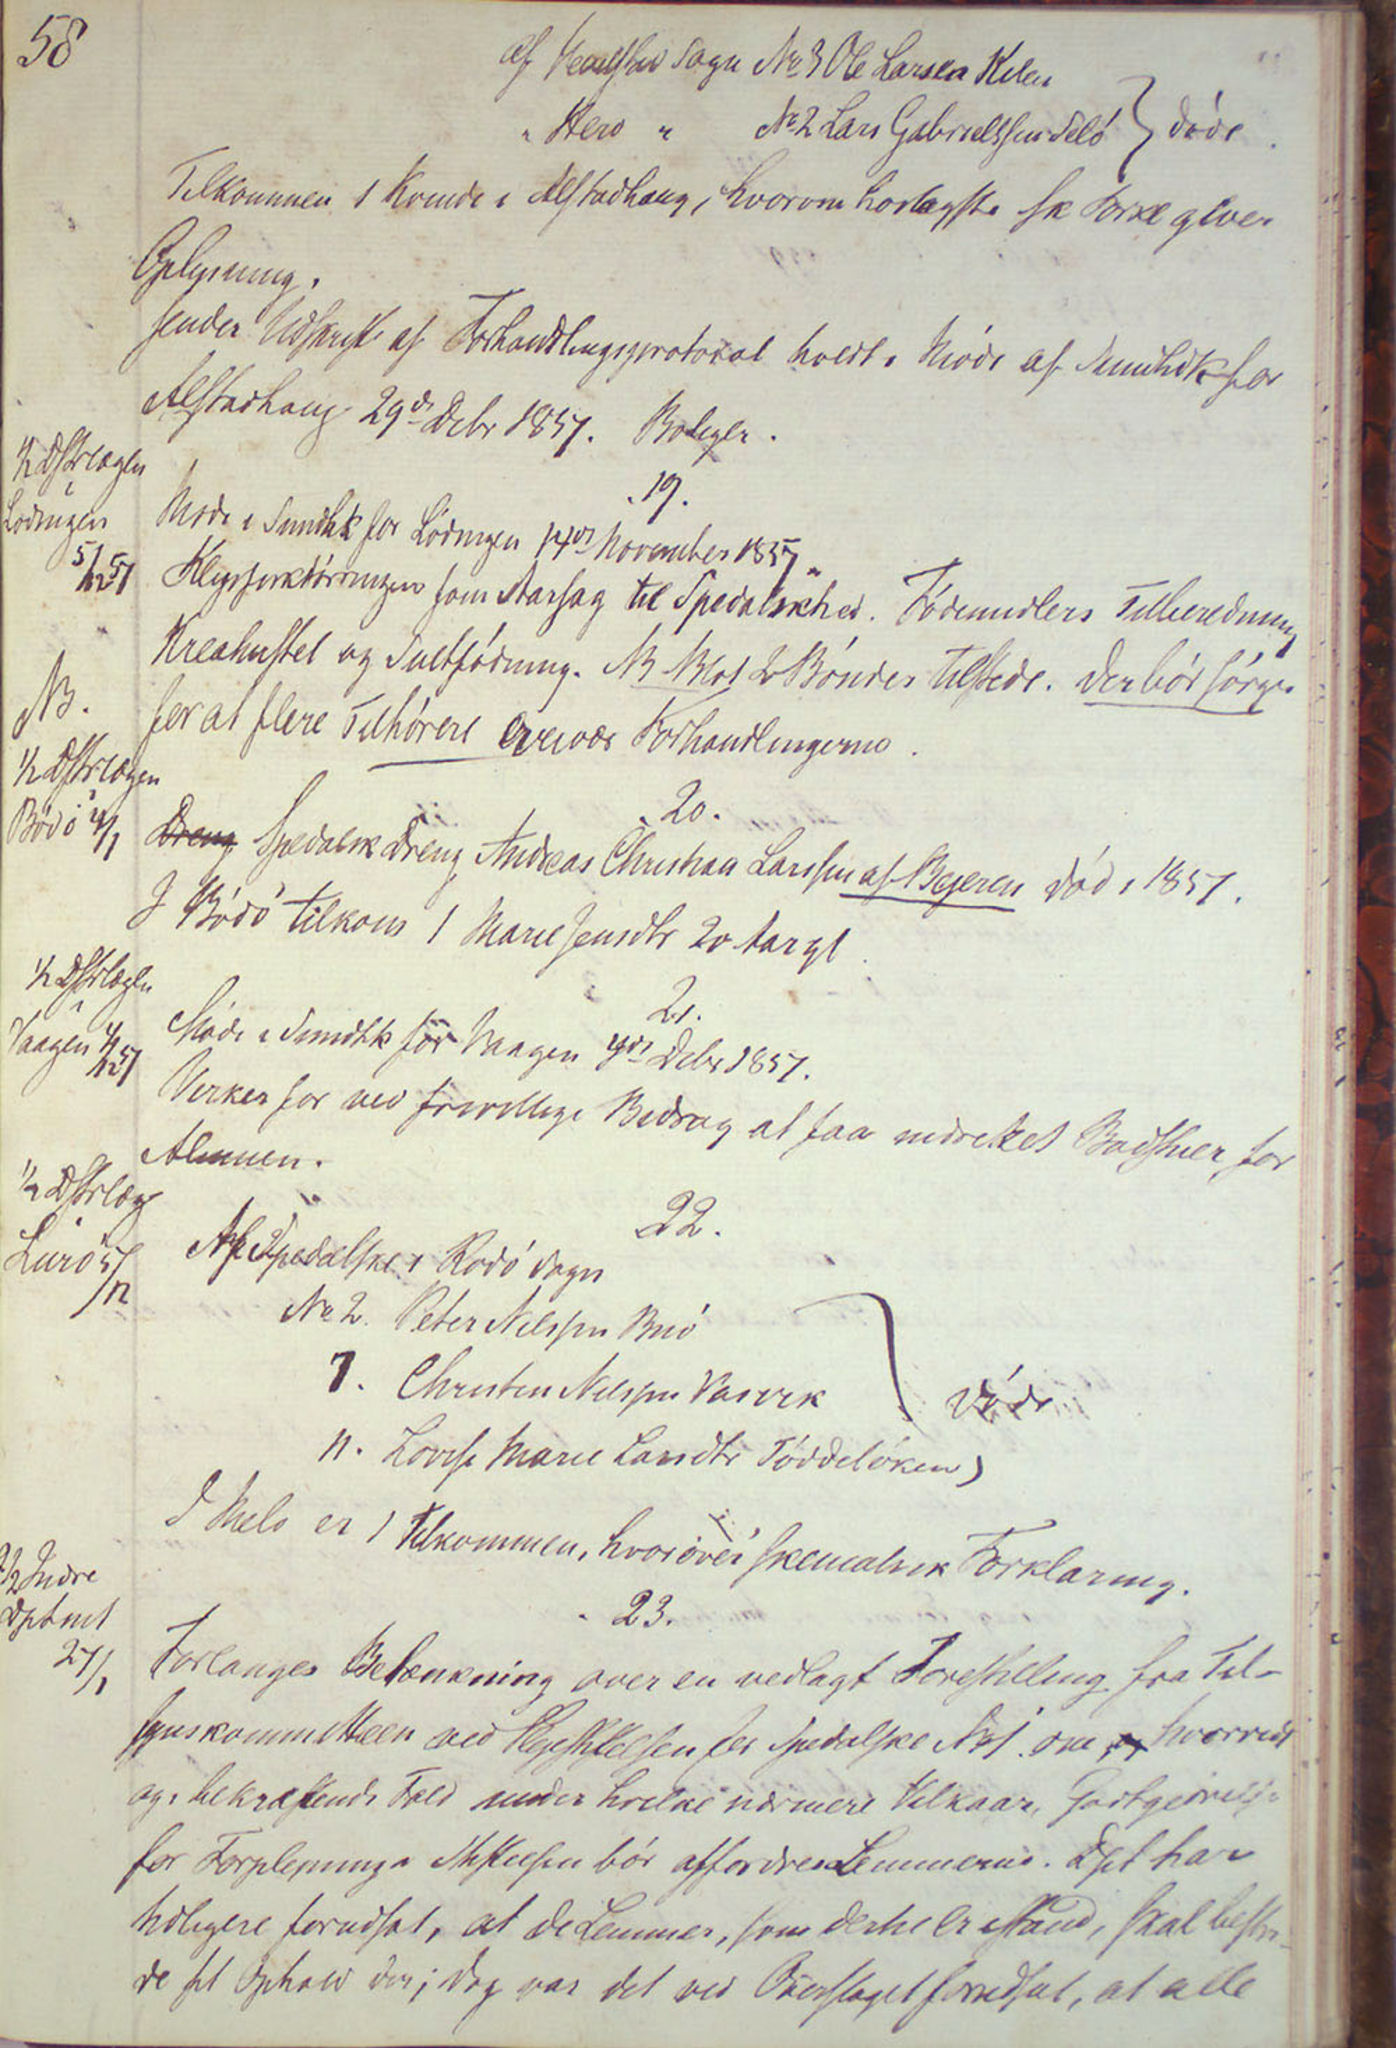 58
af Vevelstad Sogn No 3 Ole Larsen Kilen
" Herø " No 2 Lars Gabrielssen Selø } døde.
Tilkommen 1 Kvinde i Alstadhaug, hvorom hoslagste sk Forkl giver
Oplysning.
sender Udskrift af Forhandlingsprotokol holdt i Møde af Sundhdk for
Alstadhaug 29de Debr 1857. Boliger.
½ Dstrlægen
i
Lødingen
5/12 57
19.
Møde i Sundhk for Lødingen 14de November 1857.
som Aarsag til Spedalskhed. Fødemidlers Tilberedning
Kreahustel og Sultfødning. NB Blot 2 Bønder tilstede. Der bør sørges
NB.
for at flere Tilhørere overvær Forhandlingerne.
½ Dstrlægen
i
Bodø 4/1
20.
Dreng Spedalsk Dreng Andreas Christian Larssen af Bejeren død i 1857.
I Bodø tilkom 1 Marie Jensdtr 20 Aar gl.
½ Dstrlægen
i
Vaagen 4/12 57
21.
Møde i Sundhk for Vaagen Debr 1857.
Virker for ved frivillige Bidrag at faa indrettet Badstuer for
Almuen.
½ Dstrlæg
i
Lurø 5/12
22.
Af Spedalske i Rødø Sogn
No 2. Peter Nilssen
7. Christen Nilssen Vasvik } døde
11. Lovise Marie Larsdtr
I Melø er 1 tilkommen, hvorover skematisk Forklaring.
Indre
Dptmt
27/1
23.
Forlanges Betænkning over en vedlagt Forestilling fra Til-
synskommitteen ved Plejestiftelsen for Spedalske No 1. om hvorvidt
og i bekræftende Fald under hvilke nærmere Vilkaar, Godtgjørelse
for Forplejning i Stiftelsen bør affordres Lemmerne. Dpt har
tidligere forudsat, at de Lemmer, som dertil er istand, skal bestri-
de sit Ophold der; dog var det ved Overslaget forudsat, at alle